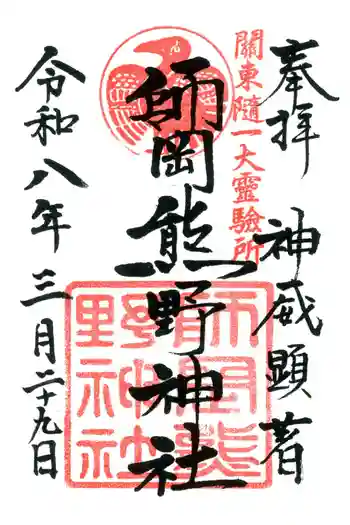 奉拝 神威顕著
關東隨一大靈驗所
師岡熊野神社
師岡熊
野神社
令和八年三月二十九日